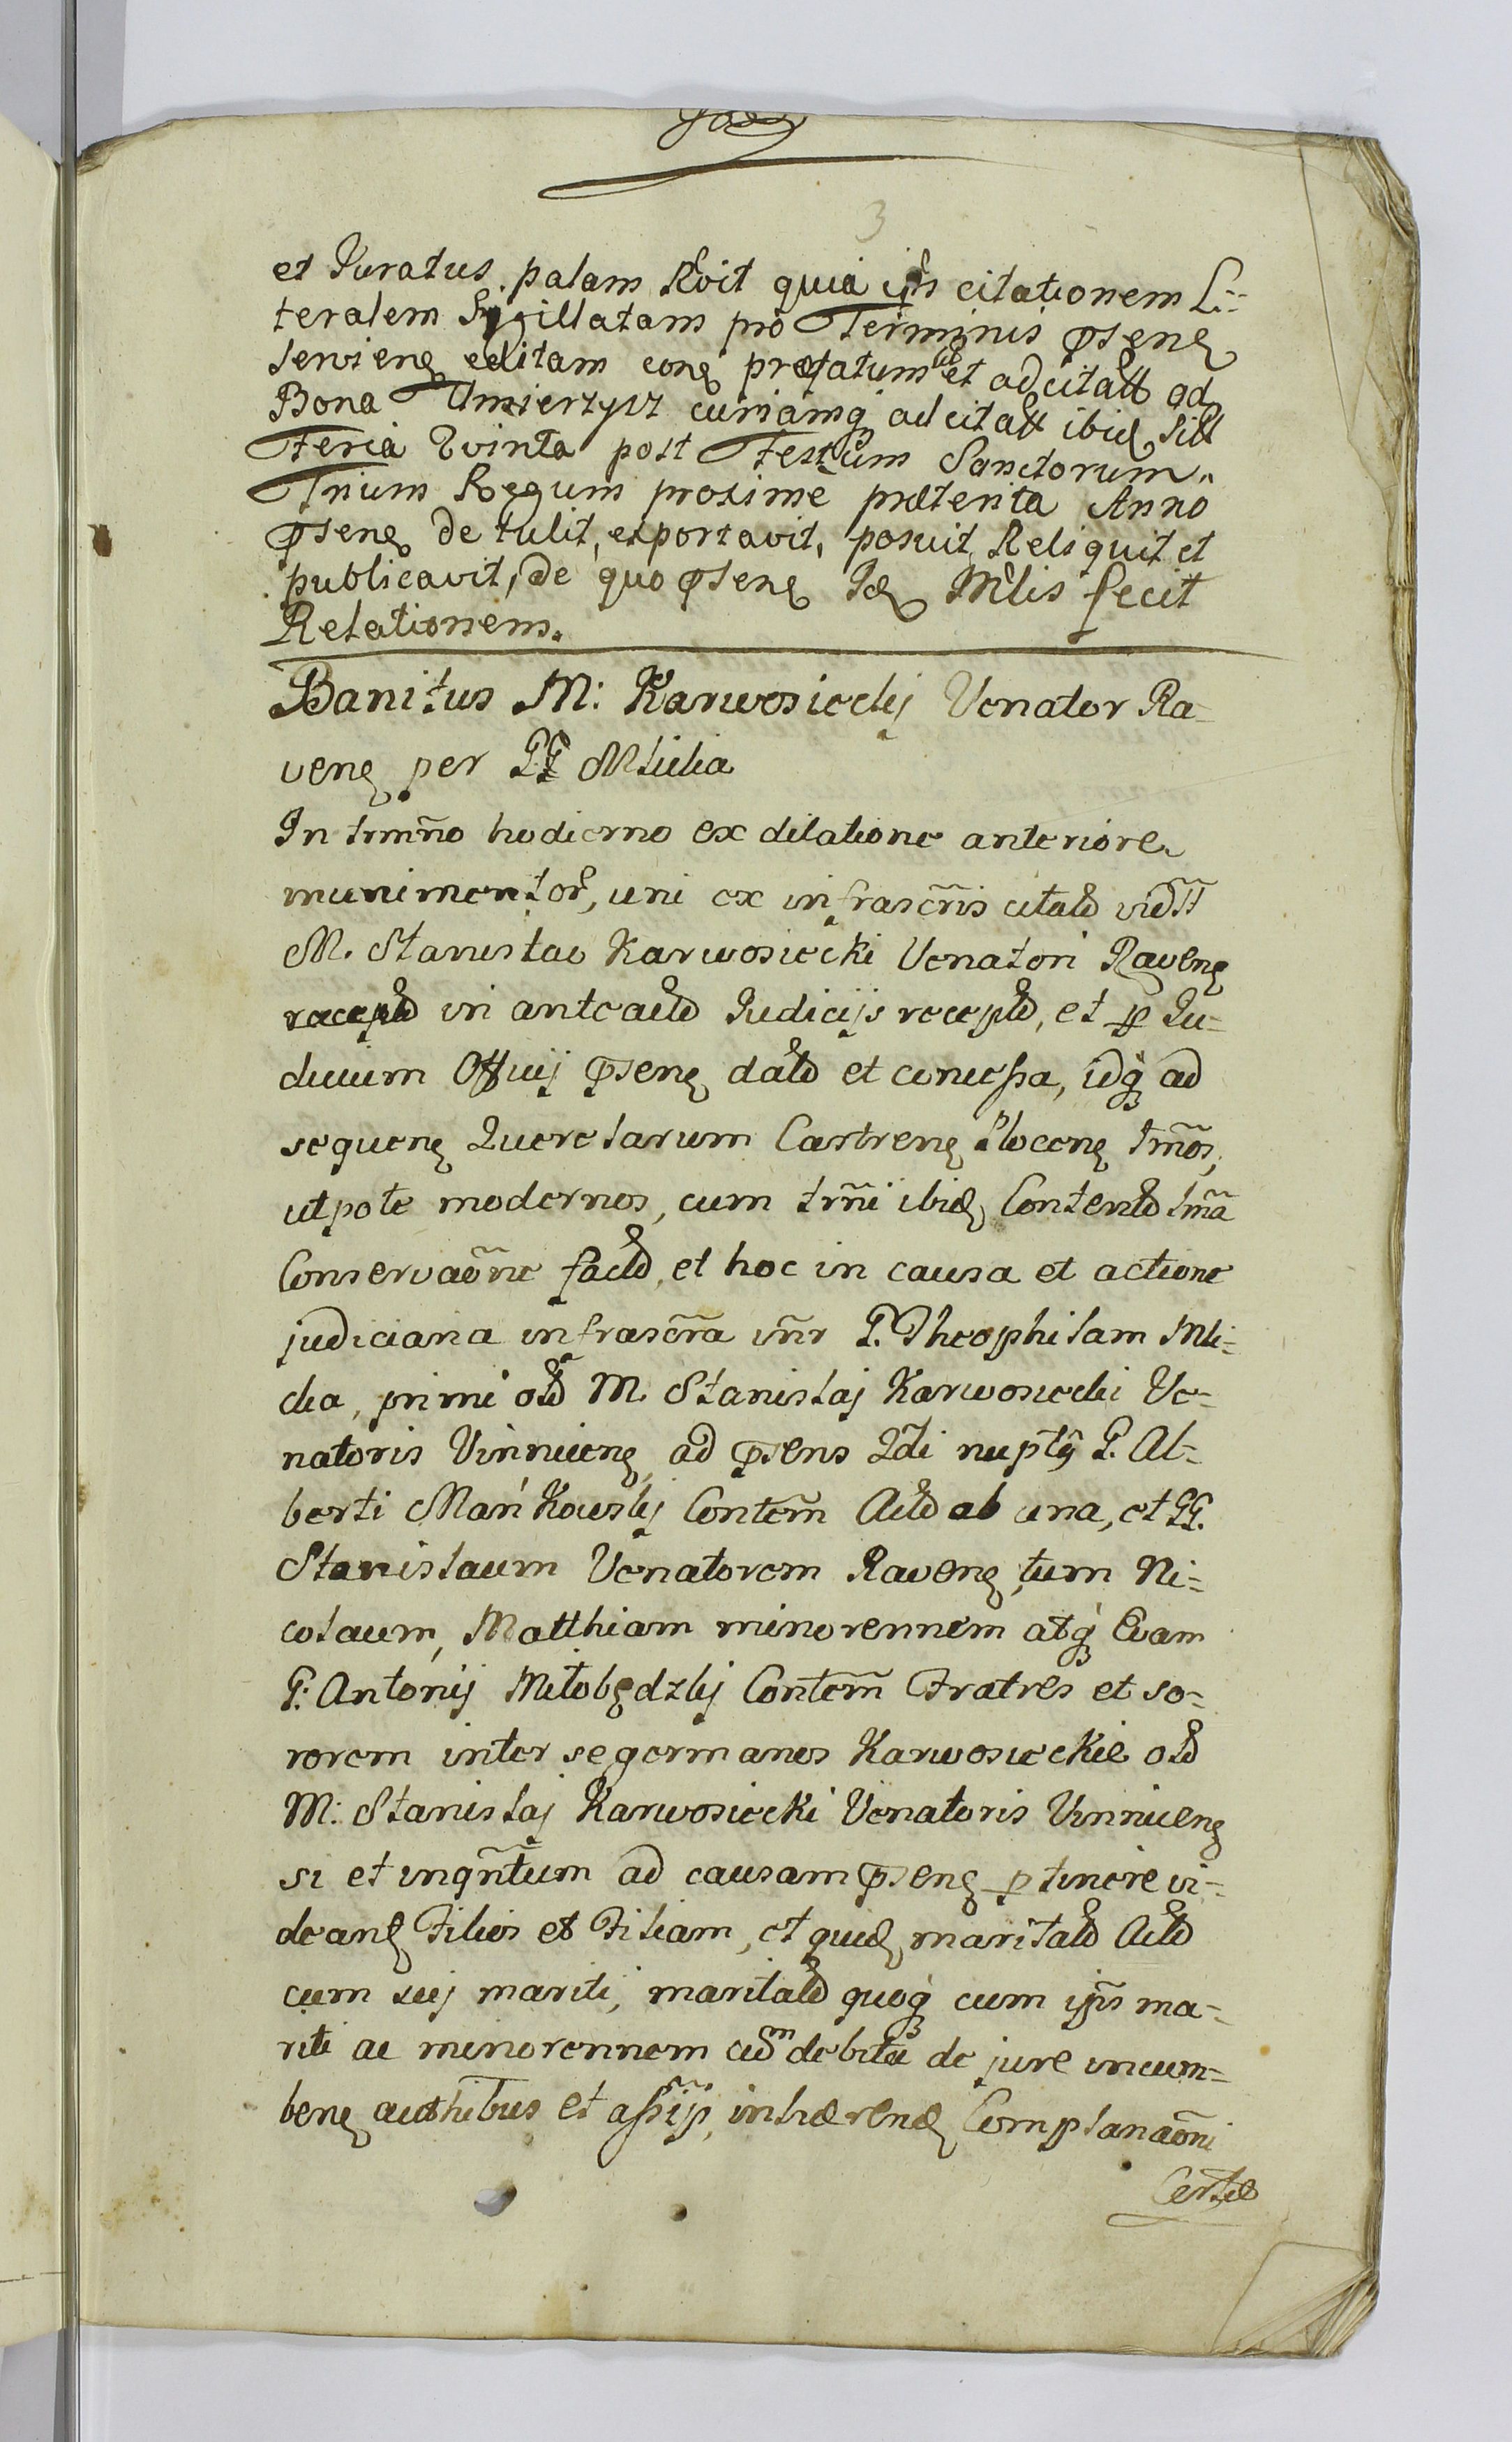 3
et Juratus palam Rvit quia ips citationem Li=
teralem Sygillatam pro Terminis pseng
servieng editam cong præfatum et adcitatt ad
Bona Umierzysz curiamq adcitatt ibid sitt
Feria Qvinta post Festum Sanctorum
Trium Regum proxime præterita Anno
pseng detulit, exportavit, posuit, Reliquit et
publicavit, de quo pseng Id Mlis fecit
Relationem.
Banitus M: Karwosieckij Venator Ra=
veng per GG Mlicka
In trmño hodierno ex dilatione anteriore
munimentor, uni ex infrascris citatt
M. Stanislao Karwosiecki Venatori Raveng
in anteactt Judicijs receptt, et p Ju=
dicium Officij pseng datt et concessa, idq ad
sequeng Querelarum Castreng Ploceng tmos,
utpote modernos, cum trmi ibid Contentt tma
Conservaõne factt, et hoc in causa et actione
judiciaria infrascra intr G. Theophilam Mli=
cka, primi olt M. Stanislaj Karwosiecki Ve=
natoris Vinniceng, ad psens 2di nuptÿ G. Al=
berti Mańkowskij Contem Actt ab una, et GG.
Stanislaum Venatorem Raveng, tum Ni=
colaum, Matthiam minorennem atq Evam
G: Antonij Miłobędzkij Contem Fratres et so=
rorem inter se germanos Karwosieckie olt
M: Stanislaj Karwosiecki Venatoris Vinniceng
si et inqntum ad causam pseng ptinere vi=
deang Filios et Filiam, et quid maritatt Actt
cum sui mariti, maritatt quoq cum ipis ma=
riti ac minorennem cum debita de jure incum=
beng authibus et assijs, inhærend Complanaõni
Certæ